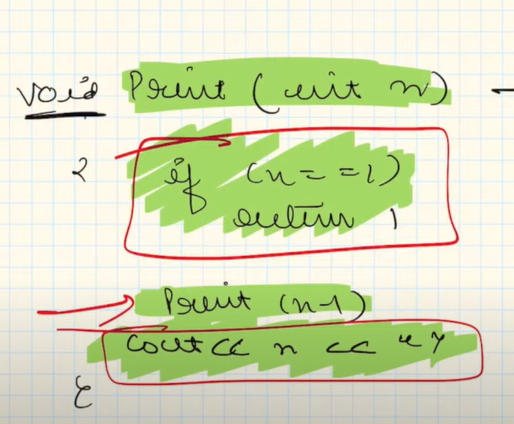 void Print (int n)
{
if (n==1)
return 1
Print (n-1)
cout<< n <<" "
}